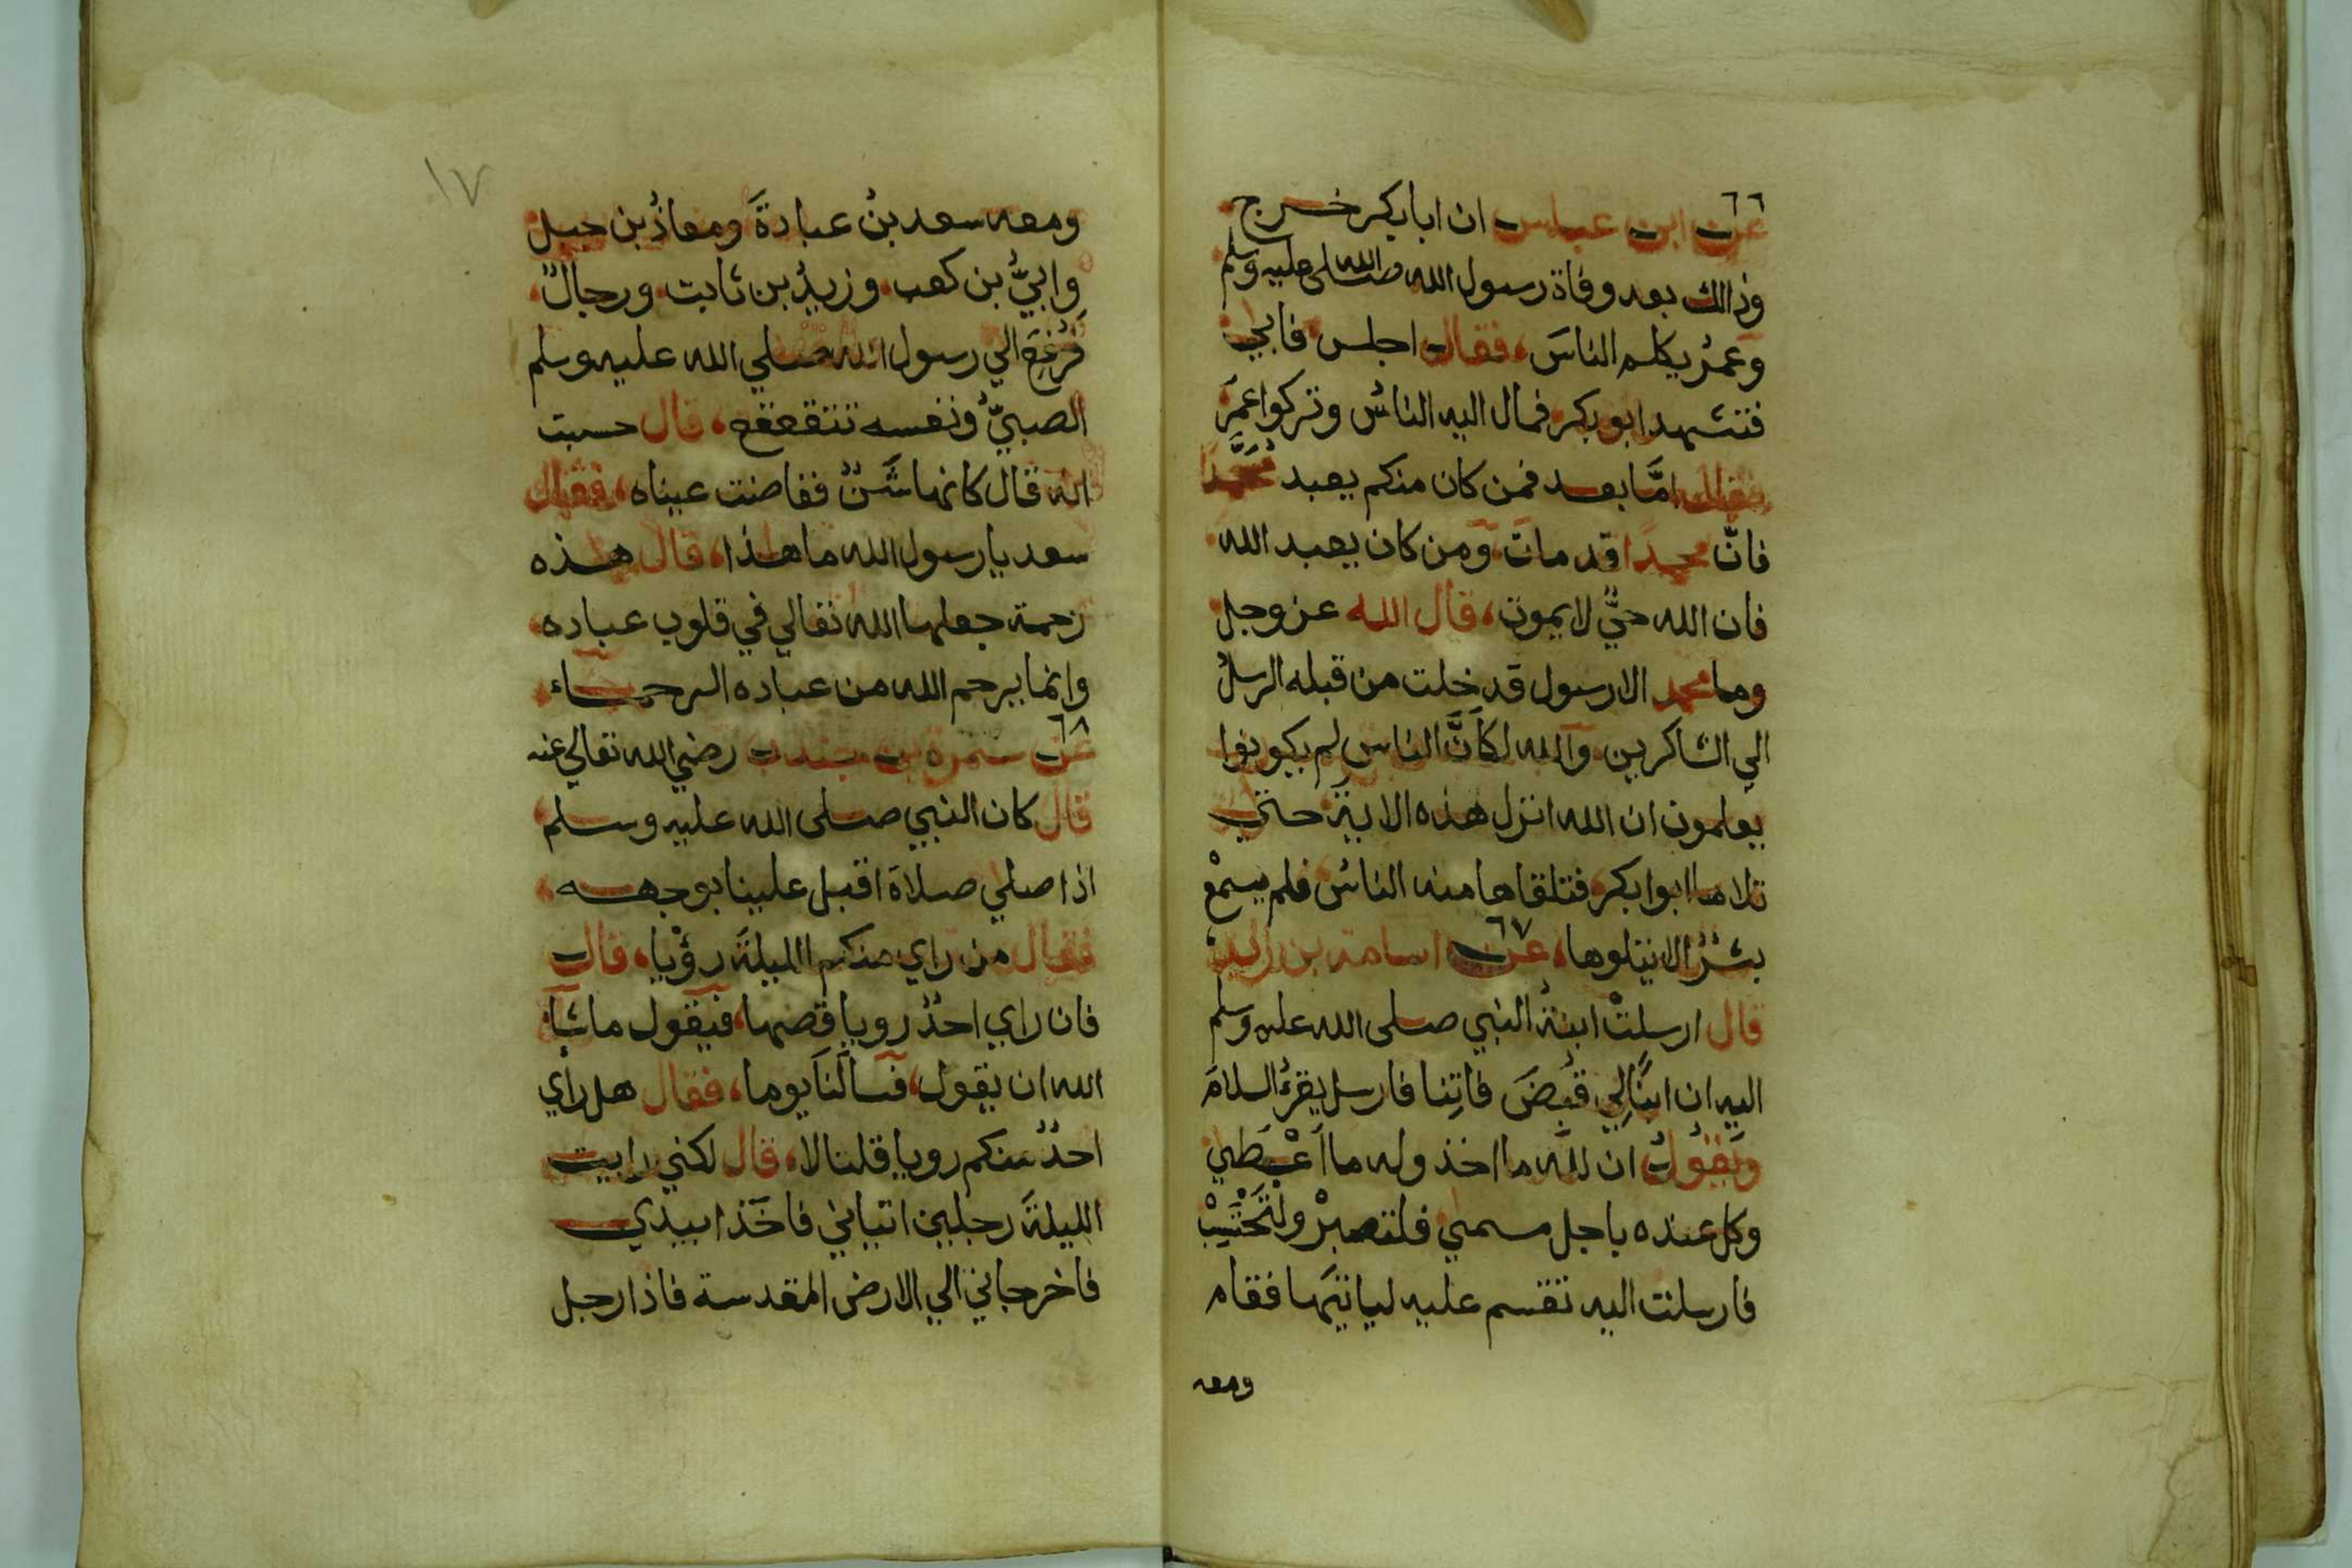 ٦٦
عن ابن عباس ان ابا بكر خرج
وذالك بعد وفاة رسول الله صلى الله عليه وسلم
وعمرُ يكلم الناسَ، فقال اجلس فابي
فتشهد ابو بكر فمال اليه الناسُ وتركوا عمَرَ
فقال امَّا بعد فمن كان منكم يعبد محمَّدًا
فانَّ محمدًا قد مات ومن كان يعبد الله
فان الله حيٌّ لا يموت، قال الله عز وجل
وما محمد الا رسول قد خلت من قبله الرسلُ
الي الشاكرين والله لكاَنَّ الناس لم يكونوا
يعلمون ان الله انزل هذه الاية حتي
تلاها ابوا بكر فتلقاها منه الناسُ فلم يسمعْ
بشرٌ الا يتلوها، ٦٧ عن اسامة بن زيد
قال ارسلتْ ابنةُ النبي صلى الله عليه وسلم
اليه ان ابنًا لِي قُبِضَ فاتِنا فارسل يقرءُ السلامَ
ويَقُولُ ان لله ما اخذ وله ما اَعْطي
وكل عنده باجل مسمي فلتصبرْ ولْتَحْتَسِبْ
فارسلت اليه تقسم عليه لياتيَنها فقام
ومعه
١٧
ومعه سعد بنُ عبادةَ ومعاذُ بن جبل
وابيُّ بن كعب وزيدُ بن ثابت ورجالٌ
فرُفِعَ الي رسول الله صلي الله عليه وسلم
الصبيُّ ونفسه تتقعقع، قال حسبت
انه قال كانها شَنٌّ ففاضت عيناه، فقال
سعد يا رسول الله ما هذا، قال هذه
رحمة جعلها الله تعالي في قلوب عباده
وانما يرحم الله من عباده الرحماء
٦٨
عن سمرة بن جندب رضي الله تعالي عنه
قال كان النبي صلى الله عليه وسلم
اذا صلي صلاة اقبل علينا بوجهه
فقال من راي منكم الليلةَ رؤْيا، قال
فان راي احدٌ رويا قصها، فيقول ما شآ
الله ان يقول، فسالَنَا يوما، فقال هل رأي
احدٌ منكم رويا قلنا لا، قال لكني رايت
الليلةَ رجلين اتياني فاخَذا بيدي
فاخرجاني الي الارض المقدسة فاذا رجل